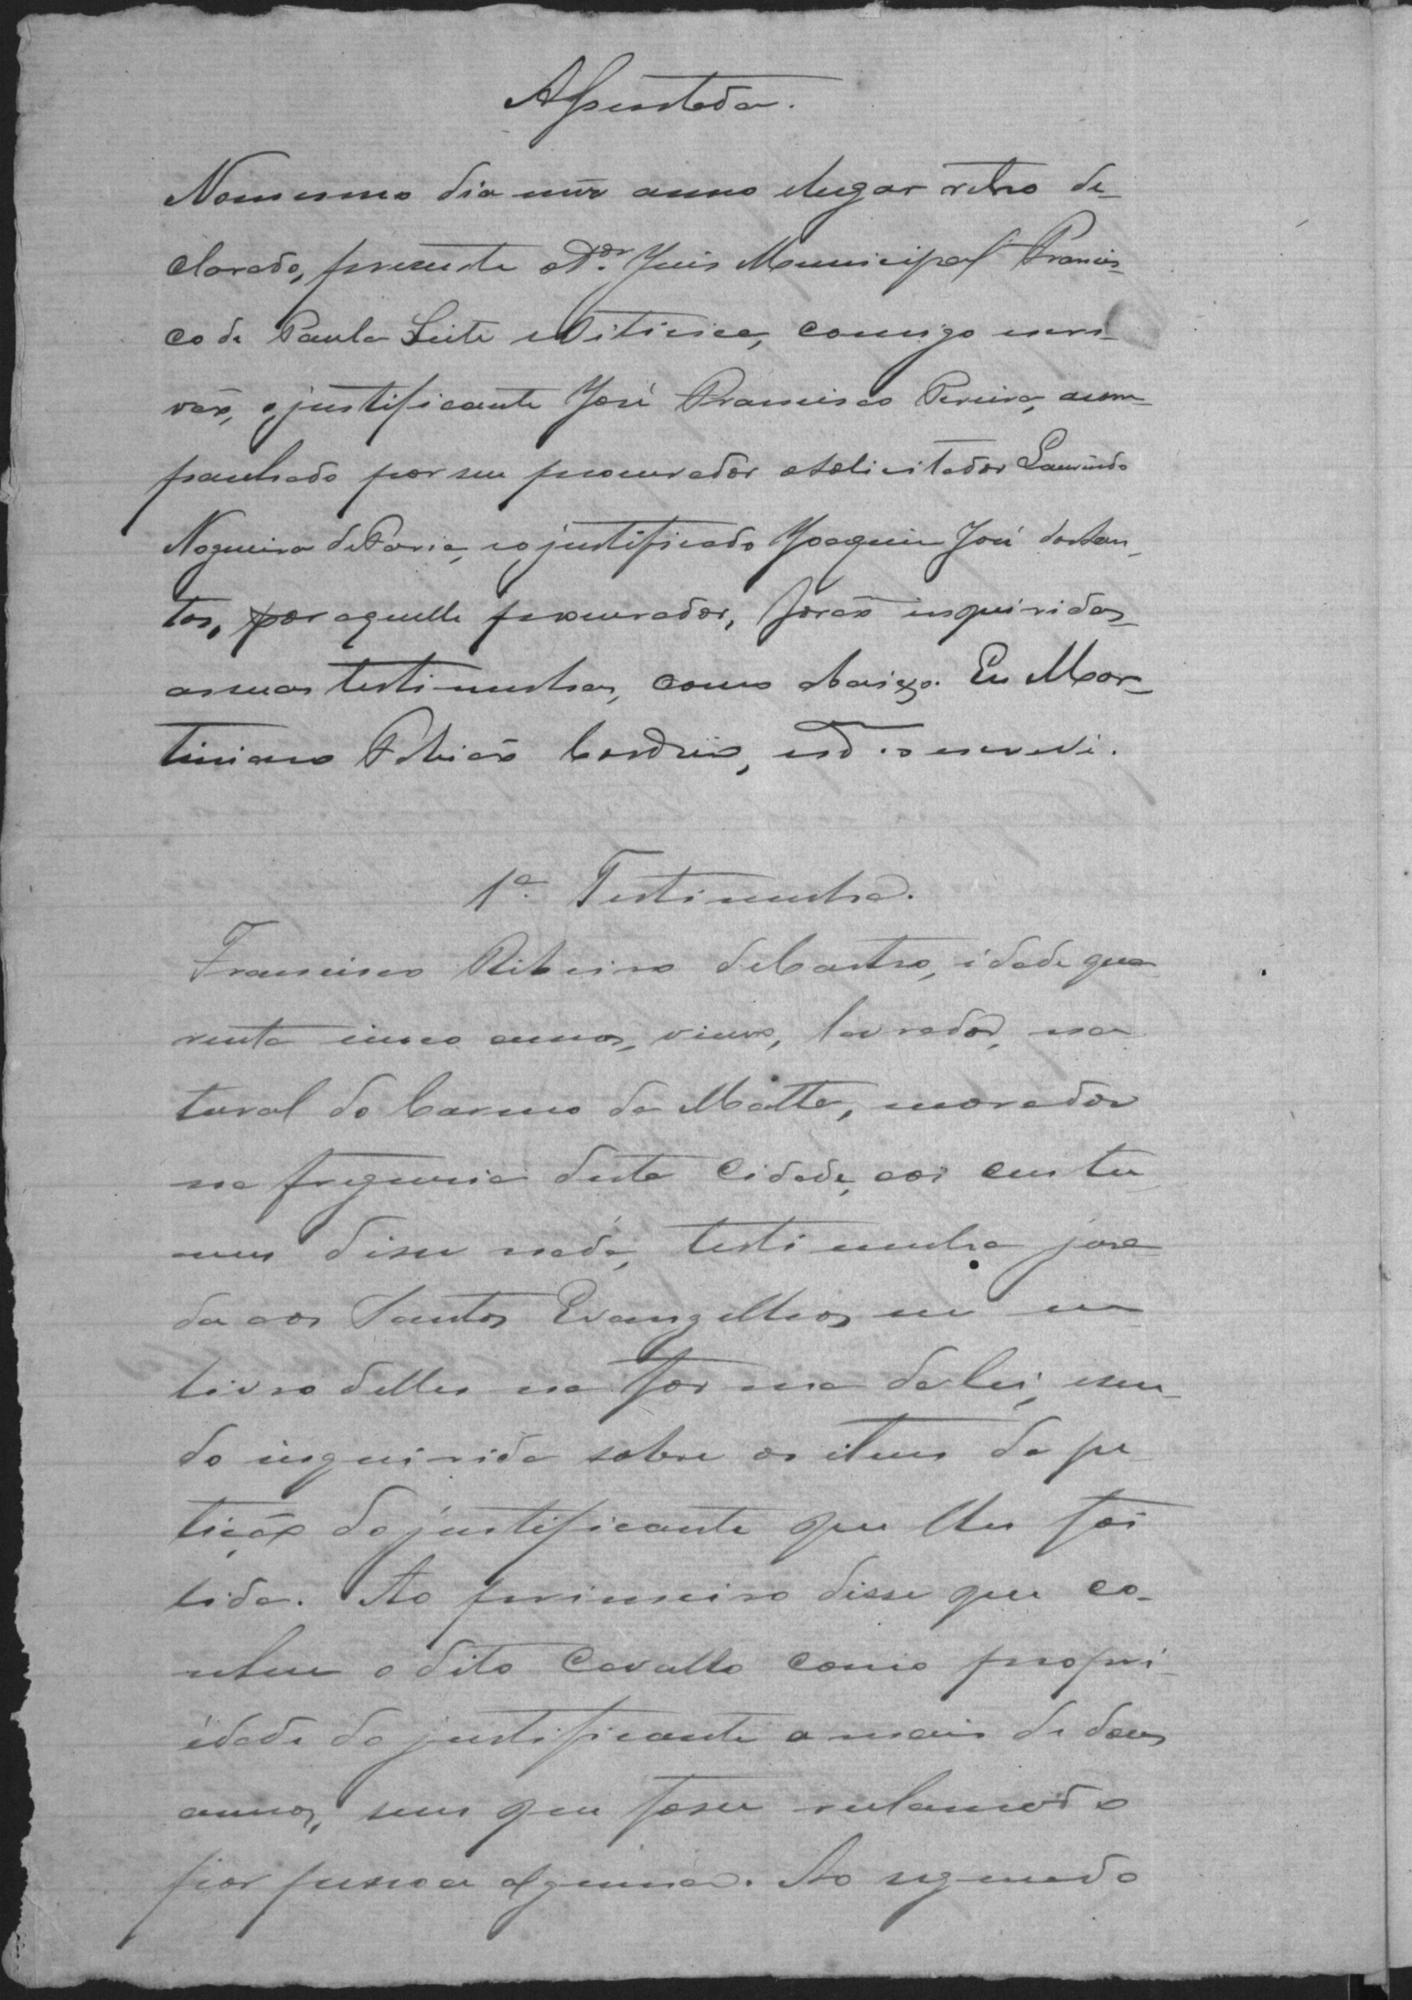 Assentada.
No mesmo dia mez anno e lugar retro de-
clarado, presente o Dr. Juis Municipal Francis-
co de Paula Leite e Oiticica, comigo escri-
vão, o justificante José Francisco Pereira, acom-
panhado por seu procurador o solicitador Laurindo
Nogueira de Faria, e o justificado Joaquim José dos San-
tos, por aquelle procurador, forão inquiridas
as suas testimunhas, como abaixo. Eu Mar-
tiniano Cordeiro, o escrevi.
1a. Testimunha.
Francisco Ribeiro de Castro, idade qua
renta cinco annos, viuvo, lavrador, na
tural do Carmo da Matta, morador
na freguesia desta Cidade, aos custu
mes disse nada, testimunha jura
da aos Santos Evangelhos em um
livro delles na forma da lei, e sen-
do inquirida sobre os itens da pe
tição do justificante que lhes foi
lida. Ao primeiro disse que co-
nhece o dito Cavallo como propri-
edade do justificante a mais de dous
annos, sem que fosse reclamado
por pessoa alguma. Ao segundo